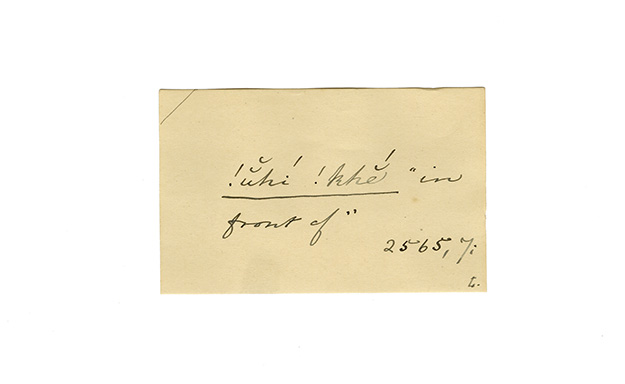 !ŭhí !kkĕ́ "in
front of"
2565, 7:
L.